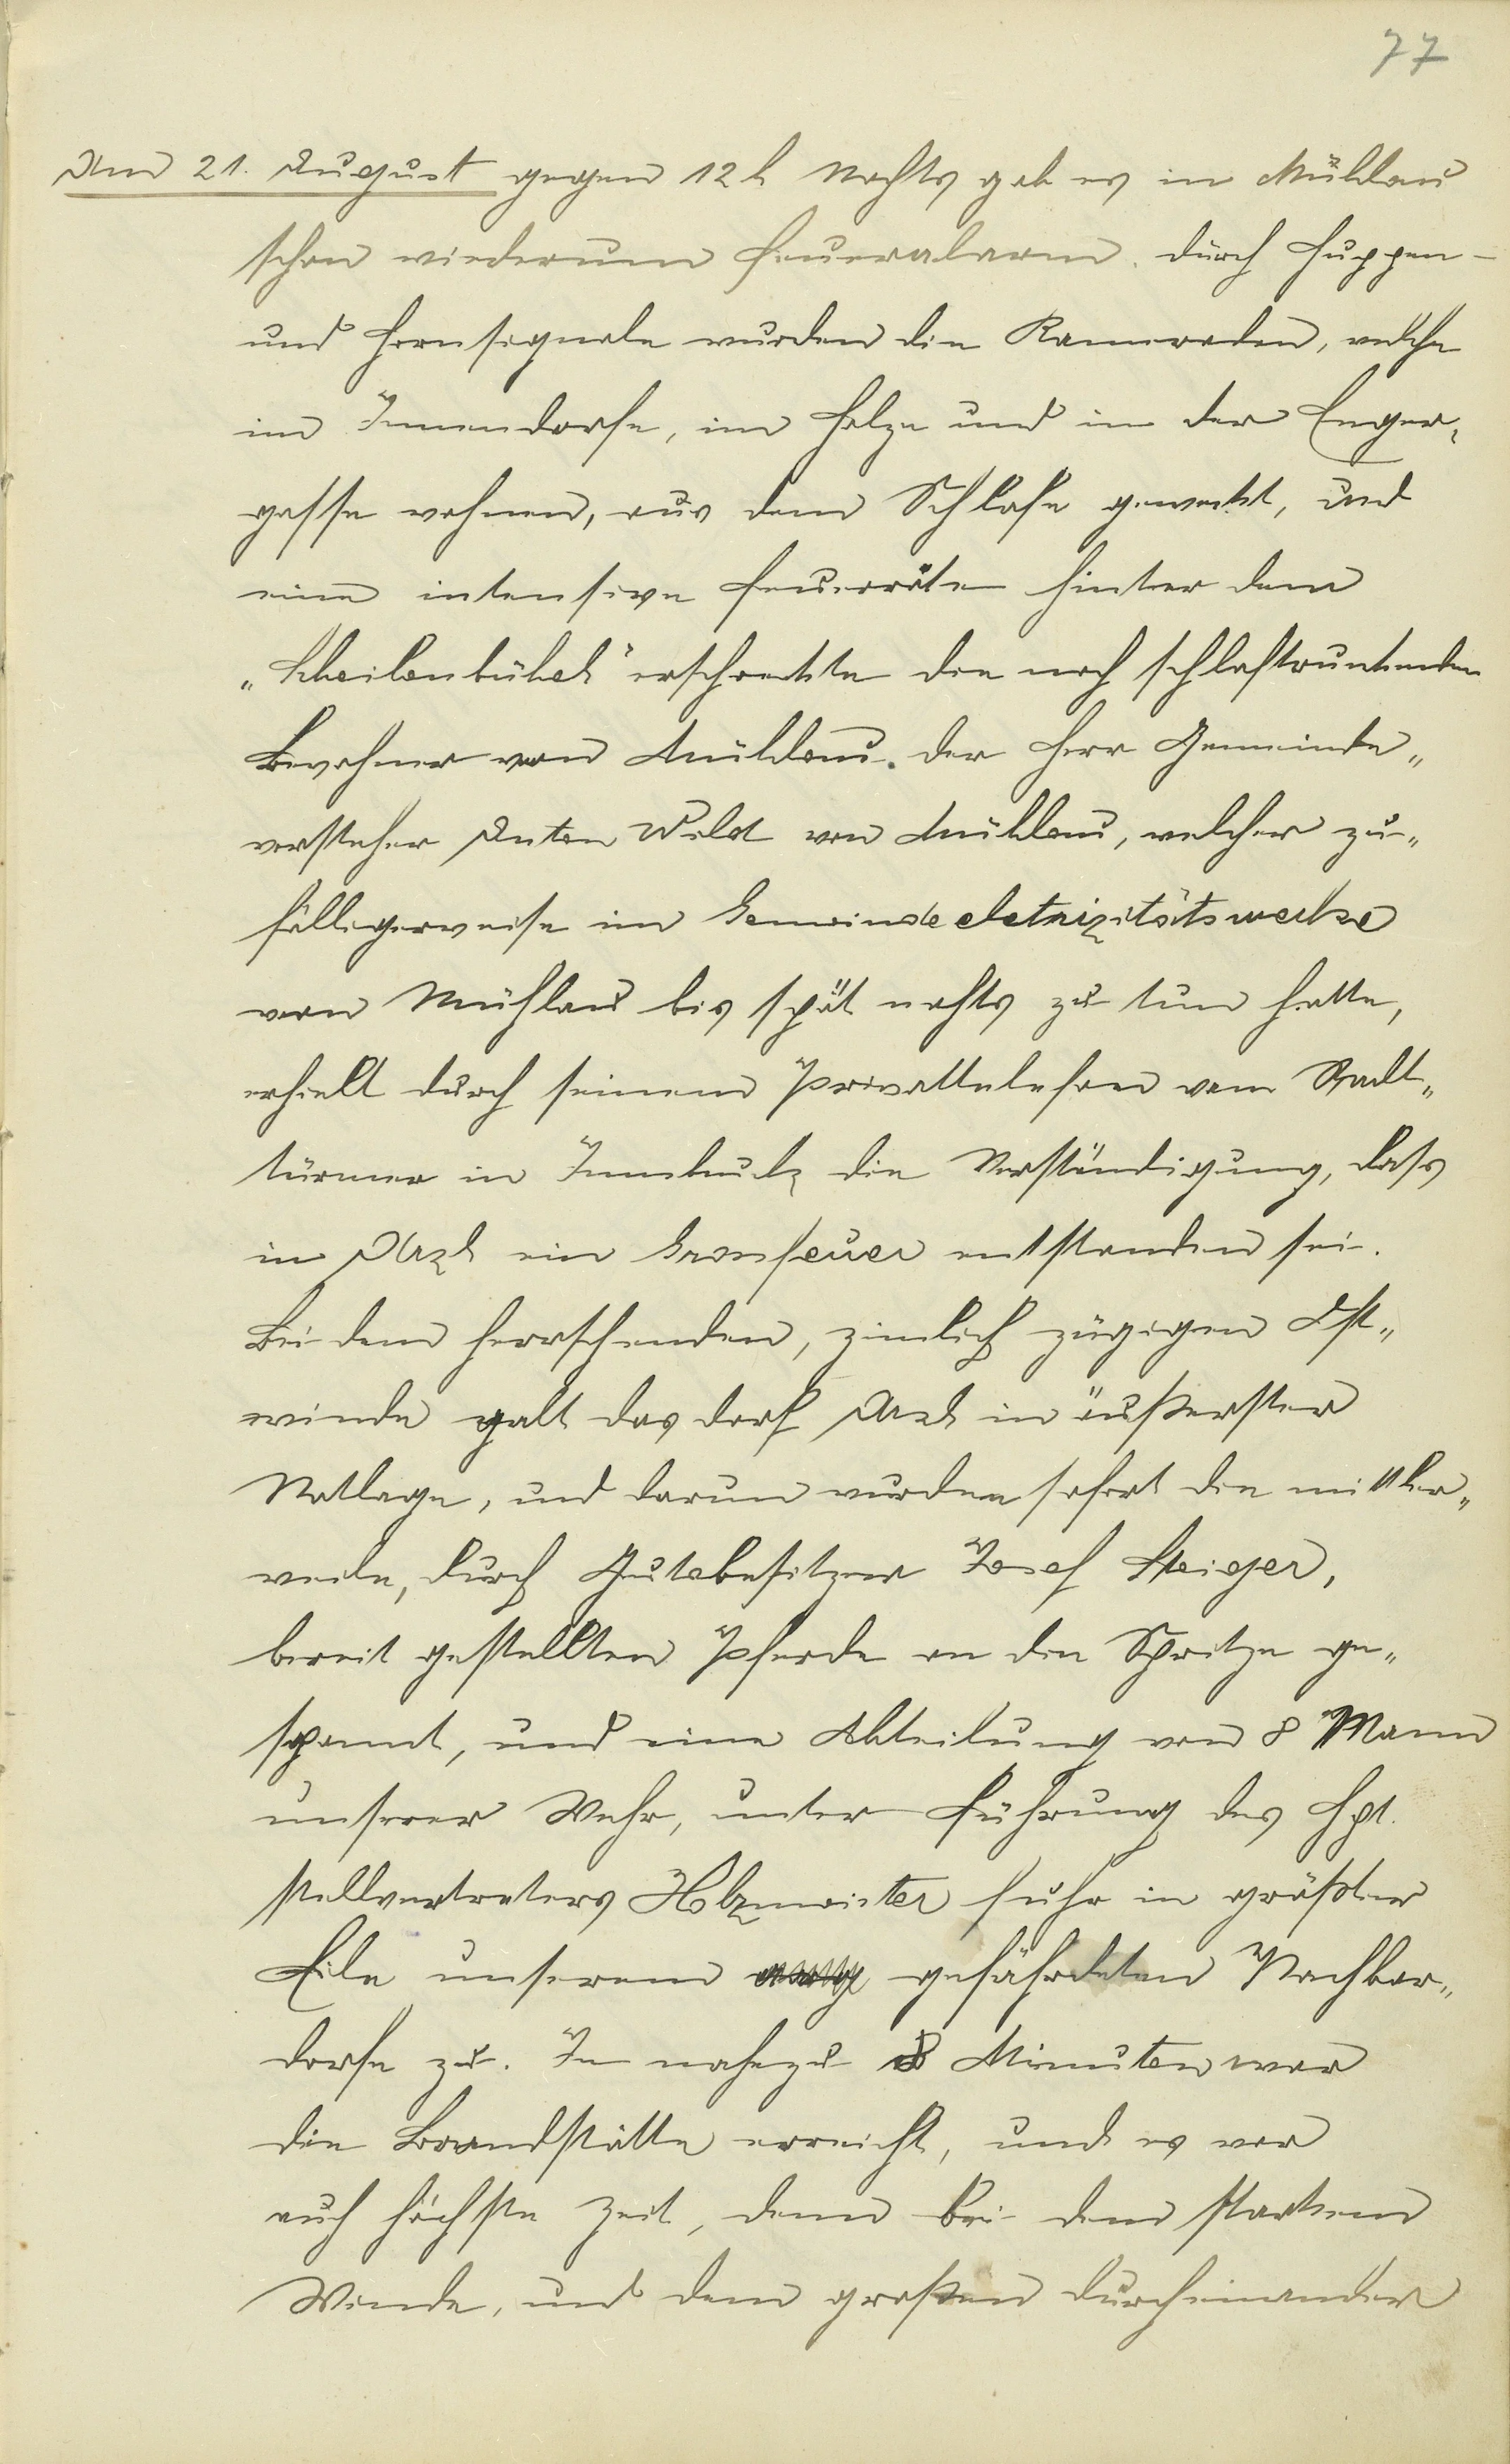 77
Am 21. August gegen 12 h Nachts gab es in Mühlau
schon wiederum Feueralarm. Durch Huppen-
und Hornsignale wurden die Kameraden, welche
im Innendorfe, im Holze und in der Enger-
gasse wohnen, aus dem Schlafe geweckt, und
eine intensive Feuerröte hinter dem
"Scheibenbühel" erschreckte die noch schlaftrunkenden
Bewohner von Mühlau. Der Herr Gemeinde-
vorsteher Anton Wild von Mühlau, welcher zu-
fälligerweise im Gemeindeelektrizitätswerke
von Mühlau bis spät nachts zu tun hatte,
erhielt durch seinem Privattelefon vom Stadt-
türmer in Innsbruck die Verständigung, dass
in Arzl ein Grossfeuer entstanden sei.
Bei dem herrschenden, zimlich zügigen Ost-
winde galt das Dorf Arzl in äußerster
Notlage, und darum wurden sofort die mittler-
weile, durch Gutsbesitzer Josef Steiger,
bereit gestellten Pferde an die Spritze ge-
spannt, und eine Abteilung von 8 Mann
unserer Wehr, unter Führung des Hpt.
stellvertreters Holzmeister fuhr in größter
Eile unserem gefährdeten Nachbar-
dorfe zu. In nahezu 8 Minuten war
die Brandstätte erreicht, und es war
auch höchste Zeit, denn bei dem starken
Winde, und dem großen Durcheinander